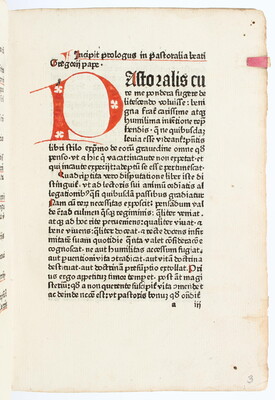 Incipit prologus in Pastoralia beati
Gregorij pape.
PAstoralis cu
re me pondera fugere de
litescendo voluisse: beni
gna frater carissime atque
humilima intentione repre
hendis. que ne quibusdam
leuia esse videantur presentis
libri stilo exprimo de eorum grauedine omne quod
penso. vt et hic que vacat incaute non expetat. et
qui incaute expecijt: adeptum se esse pertimescat
Quadripartita vero disputatione liber iste di
stinguitur. vt ad lectoris sui animum ordinatis al
legationibus quasi quibusdam passibus gradiatur.
Nam cum rerum necessitas exposcit: pensandum val
de est ad culmen quisque regiminis: qualiter veniat.
atque ad hoc rite perueniens: qualiter viuat. et
bene viuens: qualiter doceat. et recte docens infir
mitatem suam quotidie quanta valet consideratione
cognoscat. ne aut humilitas accessum fugiat.
aut peruentioni vita contradicat. aut vitam doctrina
destituat. aut doctrinam presumptio extollat. Pri
us ergo appetitum timor temperet. post autem magi
sterium quod a non querente suscipitur vita commendet.
ac deinde necesse est: vt pastoris bonum quod ostenditur
a iij
3